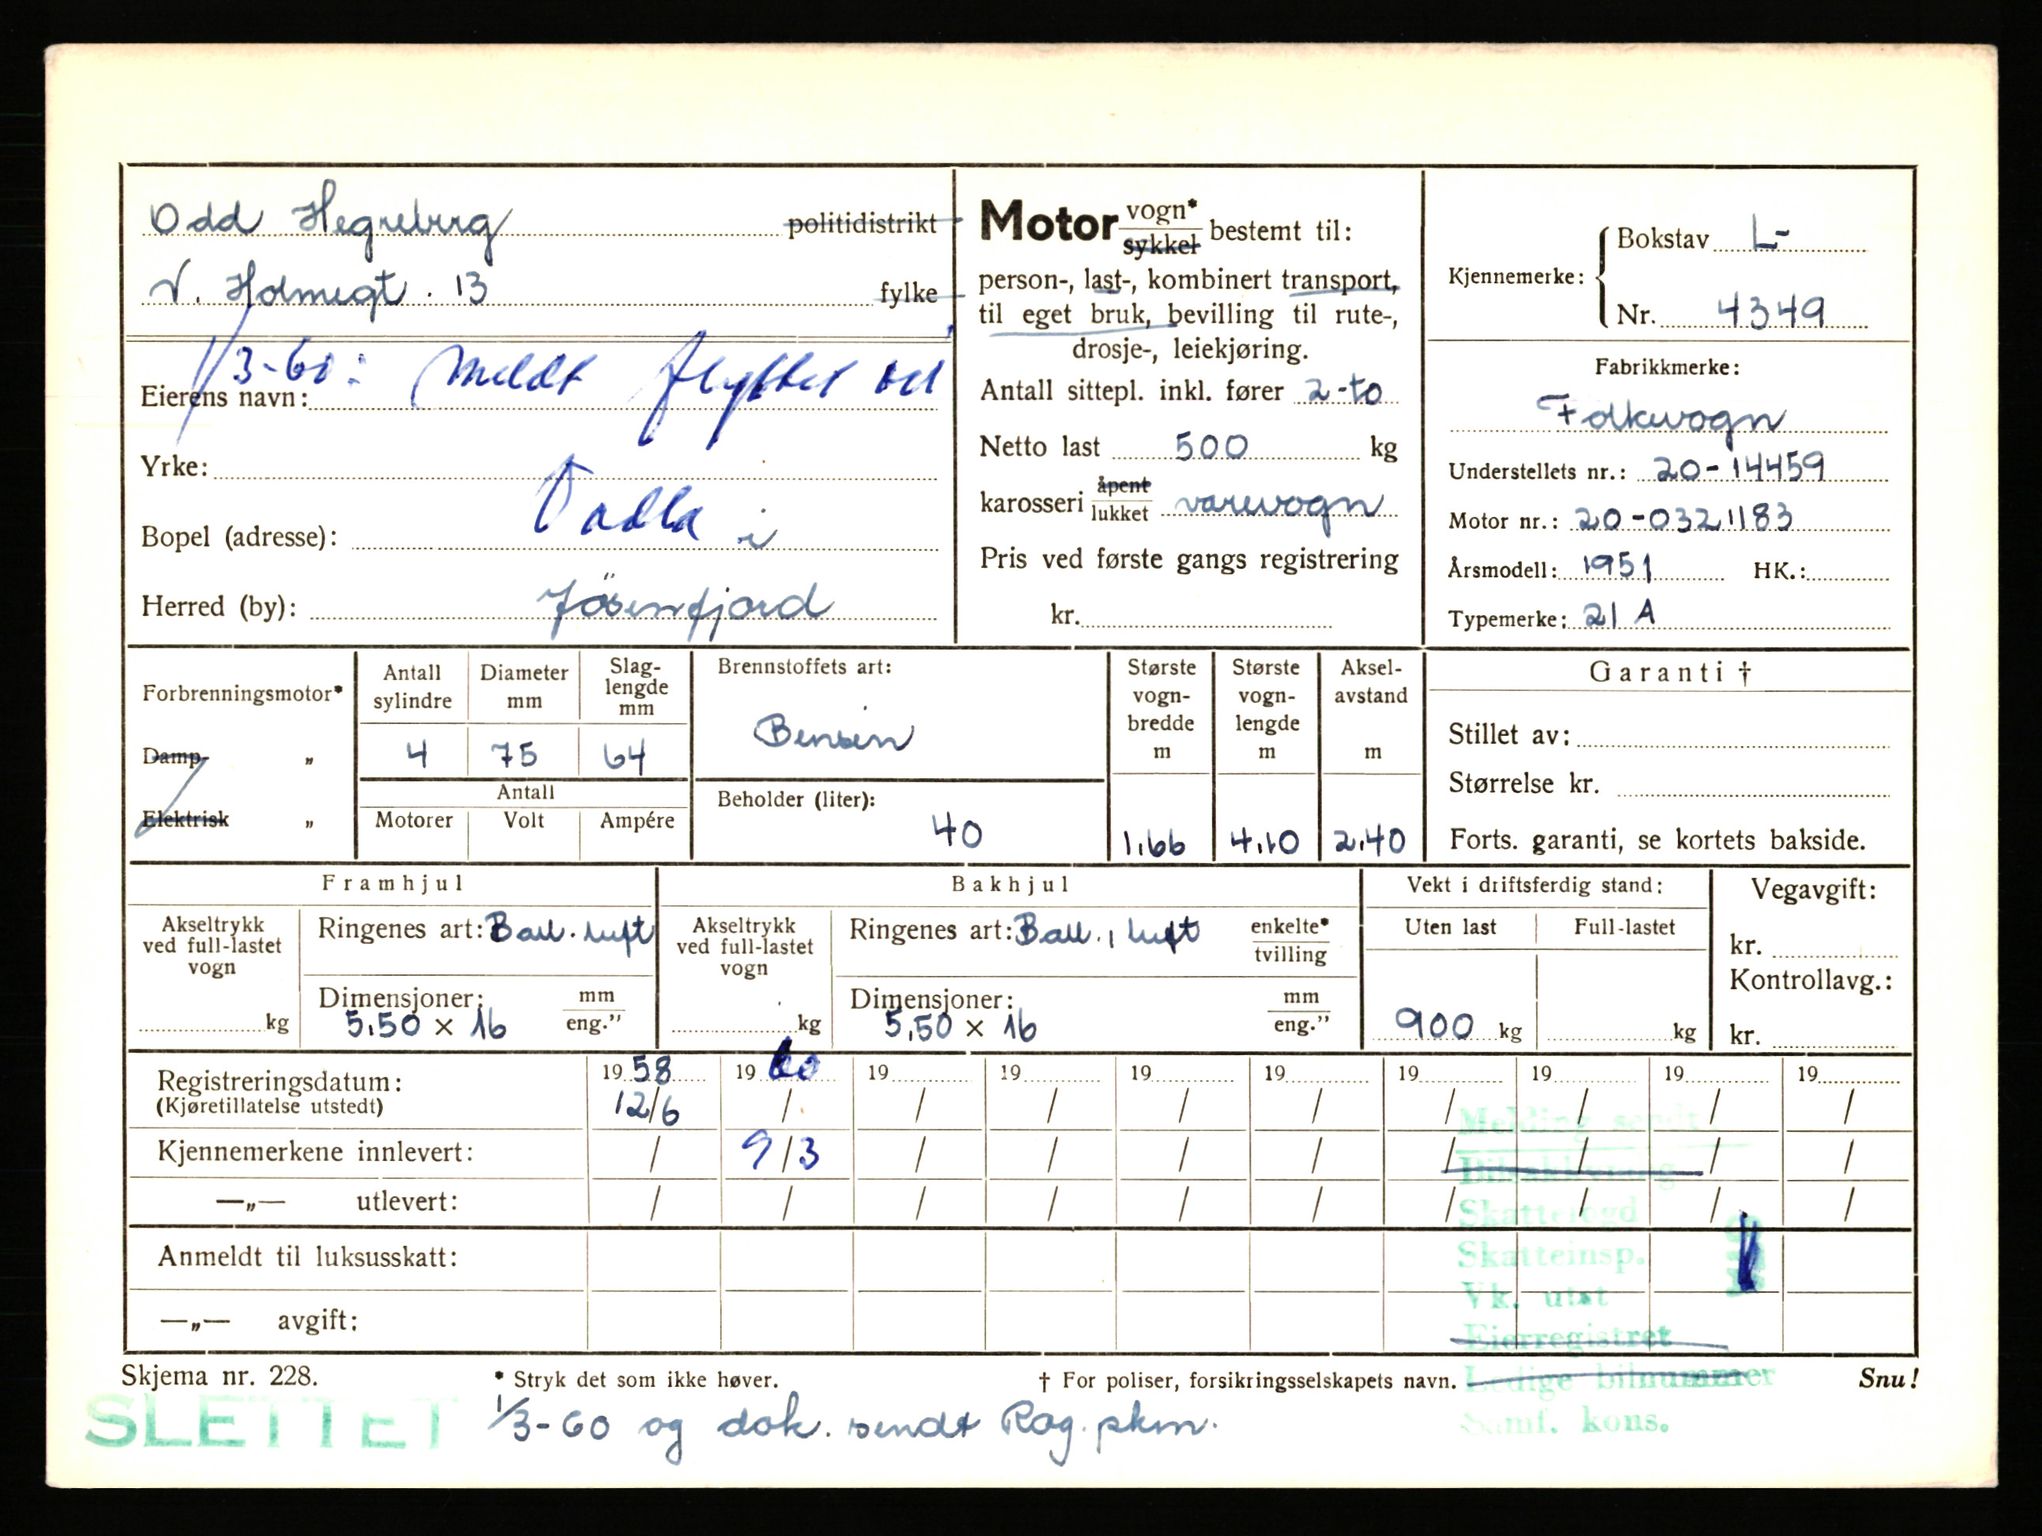 Odd Hegreberg politidistrikt
V. Holmegt. 13 fylke
1/3-60: Meldt flyttet til
Eierens navn:
Yrke:
Vadla i
Bopel (adresse):
Herred (by): Jøsenfjord
Motor vogn* sykkel bestemt til:
person-, last-, kombinert transport,
til eget bruk, bevilling til rute-,
drosje-, leiekjøring.
Antall sittepl. inkl. fører 2-to
Netto last 500 kg
karosseri åpent lukket varevogn
Pris ved første gangs registrering
kr.
Kjennemerke: Bokstav L-
Nr. 4349
Fabrikkmerke:
Folkevogn
Understellets nr.: 20-14459
Motor nr.: 20-0321183
Årsmodell: 1951 HK.:
Typemerke: 21 A
Forbrenningsmotor*
Damp- „
Elektrisk „
Antall sylindre Diameter mm Slag-lengde mm
4 75 64
Antall
Motorer Volt Ampére
Brennstoffets art:
Bensin
Beholder (liter):
40
Største vogn-bredde m
1.66
Største vogn-lengde m
4.10
Aksel-avstand m
2.40
Garanti †
Stillet av:
Størrelse kr.
Forts. garanti, se kortets bakside.
Framhjul
Akseltrykk ved full-lastet vogn
kg
Ringenes art: Ball. luft
Dimensjoner: mm eng.”
5.50 × 16
Bakhjul
Akseltrykk ved full-lastet vogn
kg
Ringenes art: Ball., luft enkelte* tvilling
Dimensjoner: mm eng.”
5,50 × 16
Vekt i driftsferdig stand:
Uten last Full-lastet
900 kg kg
Vegavgift:
kr.
Kontrollavg.:
kr.
Registreringsdatum: 19 58 19 60 19 19 19 19 19 19 19 19
(Kjøretillatelse utstedt) 12/6 / / / / / / / / /
Kjennemerkene innlevert: / 9/3 / / / / / / / /
—„— utlevert: / / / / / / / / / /
Anmeldt til luksusskatt:
—„— avgift:
Melding sendt
Skattefogd
Skatteinsp.
Vk. utst
Eierregistret
Ledige bilnummer
Samf. kons.
Skjema nr. 228. * Stryk det som ikke høver. † For poliser, forsikringsselskapets navn. Snu!
SLETTET 1/3-60 og dok. sendt Rog. pkm.